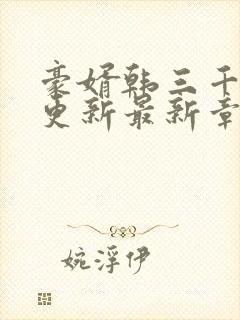 豪婿韩三千
更新最新章
婉浮伊